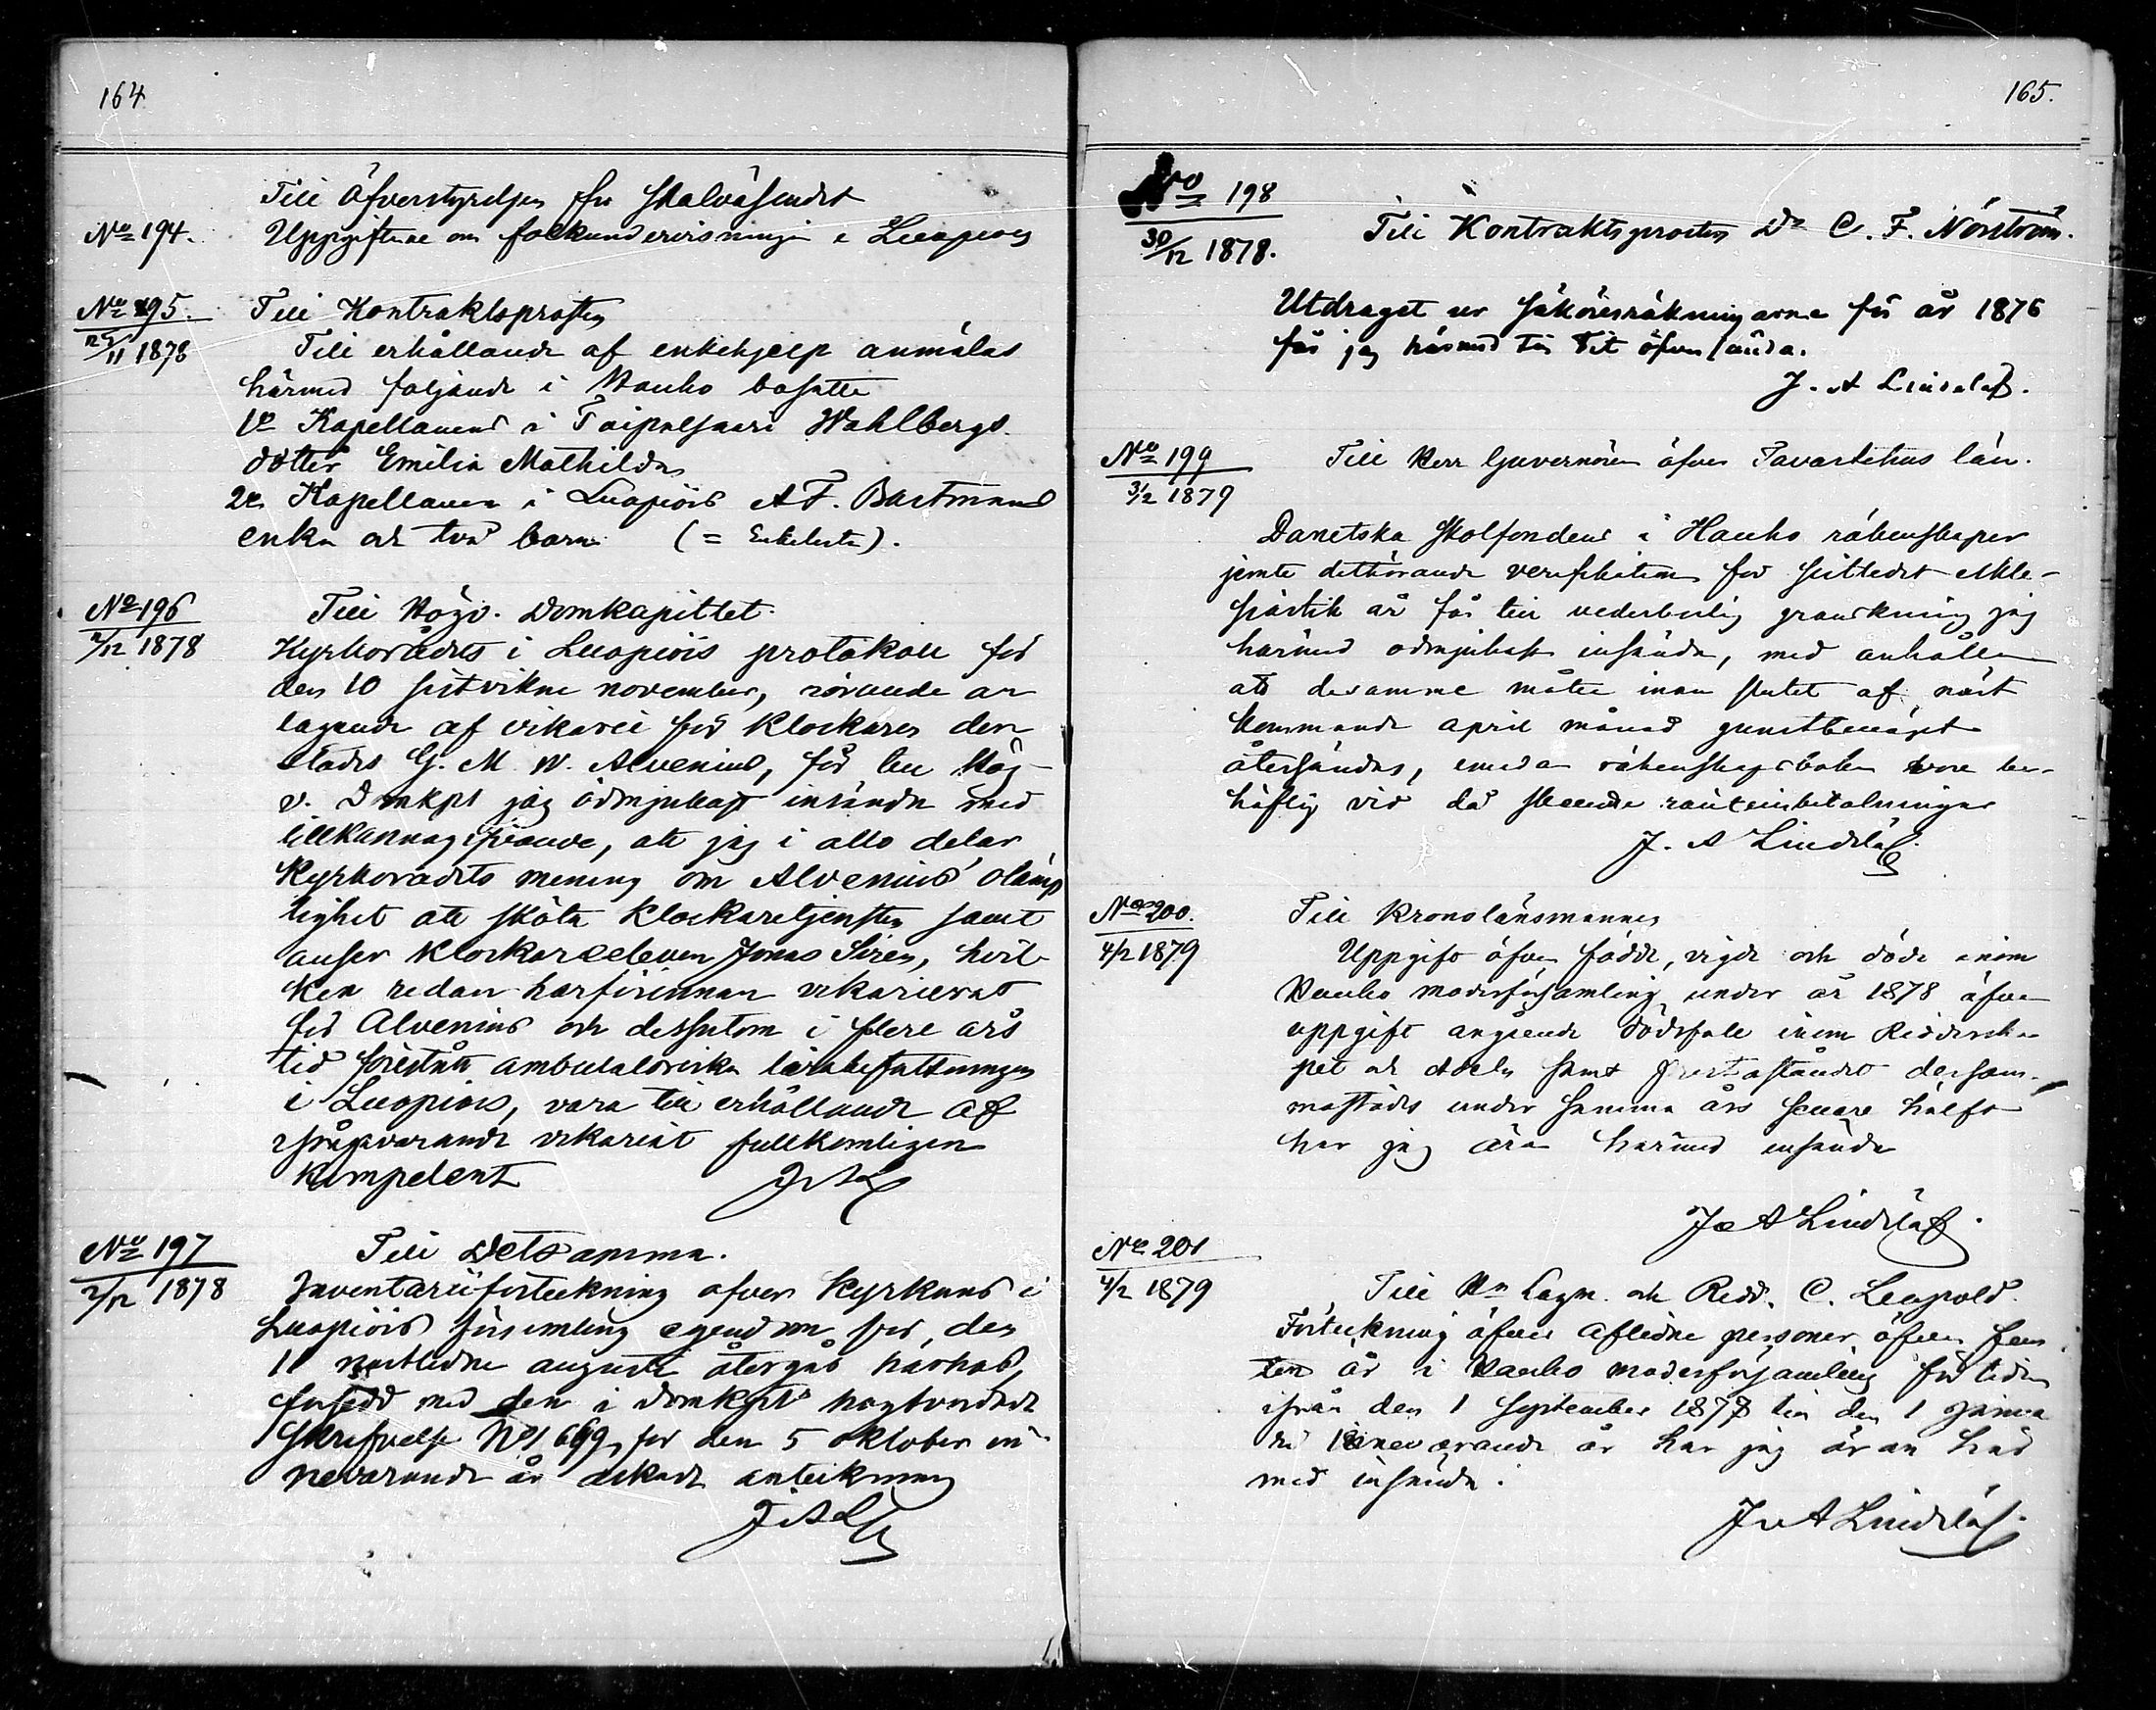 164
Till Öfverstyrelsen för Skolväsendet
No 194. Uppgifterne om folkundervisningen i Luopiois
No 195. Till Kontraktsprosten
25/11 1878 Till erhållande af enkehjelp anmälas
härmed följande i Hauho bosatte
1o Kapellanens i Taipalsaari Wahlbergs
dotter Emilia Mathilda
2o Kapellanen i Luopiois A F. Bartmans
enka och två barn (= Enkelista).
No 196 Till Högv. Domkapitlet.
2/12 1878 Kyrkorådets i Luopiois protokoll för
den 10 sistvikne november, rörande an
tagande af vikarie för klockaren der
städes G. M. W. Alvenius, får till Hög-
v. Domkpt jag ödmjukast insända med
tillkännagifvande, att jag i allo delar
Kyrkorådets mening om Alvenius' olämp
lighet att sköta klockaretjensten samt
anser klockareeleven Jonas Siren, hvil-
ken redan härförinnan vikarierat
för Alvenius och dessutom i flere års
tid förestått ambulatoriska lärobefattningen
i Luopiois, vara till erhållande af
ifrågavarande vikariat fullkomligen
kompetent
J A L
No 197 Till Detsamma.
2/12 1878 Inventariiförteckning öfver Kyrkans i
Luopiois församling egendom för den
11 nästledne augusti återgår härhos,
försedd med den i Domkpts högtvördade
Skrifvelse No 1669 för den 5 oktober in
nevarande år äskade anteckning
J A L
165.
No 198
30/12 1878. Till Kontraktsprosten Dr C. F. Nordström.
Utdraget ur saköresräkningarne för år 1876
får jag härmed till Tit öfversända.
J. A Lindelöf.
No 199 Till Herr Guvernören öfver Tavastehus län.
31/12 1879
Danetska Skolfondens i Hauho räkenskaper
jemte dithörande verifikationer för sistledet ekkle-
siastik år får till vederbörlig granskning jag
härmed ödmjukast insända, med anhållan
att desamme måtte inom slutet af näst
kommande april månad gunstbenäget
återsändas, emedan räkenskapsboken vore be-
höflig vid då skeende ränteinbetalningar
J. A Lindelöf.
No 200. Till Kronolänsmannen
4/2 1879 Uppgift öfver födde, vigde och döde inom
Hauho moderförsamling under år 1878 äfven
uppgift angående dödsfall inom Ridderska
pet och Adeln samt Presteståndet dersam-
mastädes under samma års senare hälft
har jag äran härmed insända
J A Lindelöf.
No 201
4/2 1879 Till Hr Lagm. och Ridd. C. Leopold.
Förteckning öfver aflidne personer öfver fem
ton år i Hauho moderförsamling för tiden
ifrån den 1 September 1878 till den 1 Janua
ri innevarande år har jag äran här
med insända.
J A Lindelöf.